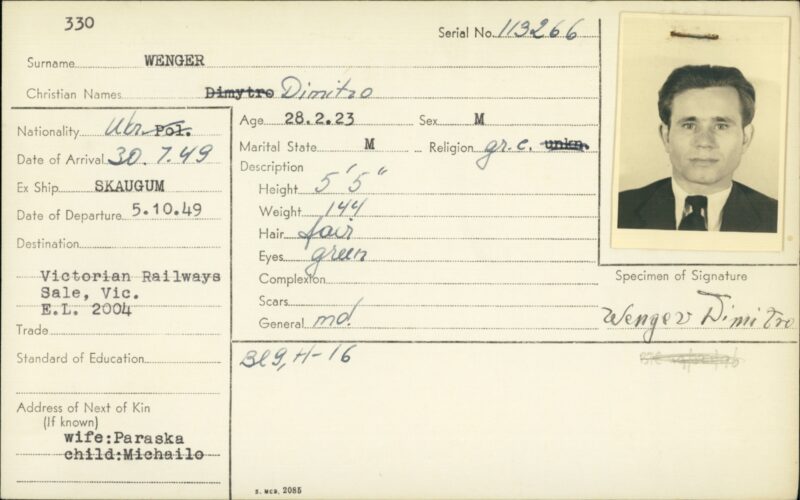 330
Serial No. 113266
Surname WENGER
Christian Names Dimytro Dimitro
Nationality Ukr. Pol.
Date of Arrival 30.7.49
Ex Ship SKAUGUM
Date of Departure 5.10.49
Destination
Victorian Railways
Sale, Vic.
E.L. 2004
Trade
Standard of Education
Address of Next of Kin
(If known)
wife:Paraska
child:Michailo
Age 28.2.23 Sex M
Marital State M Religion gr.c. unkn.
Description
Height 5'5"
Weight 144
Hair fair
Eyes green
Complexion
Scars
General md.
Bl9, H-16
S. MCR. 2085
Specimen of Signature
Wenger Dimitro